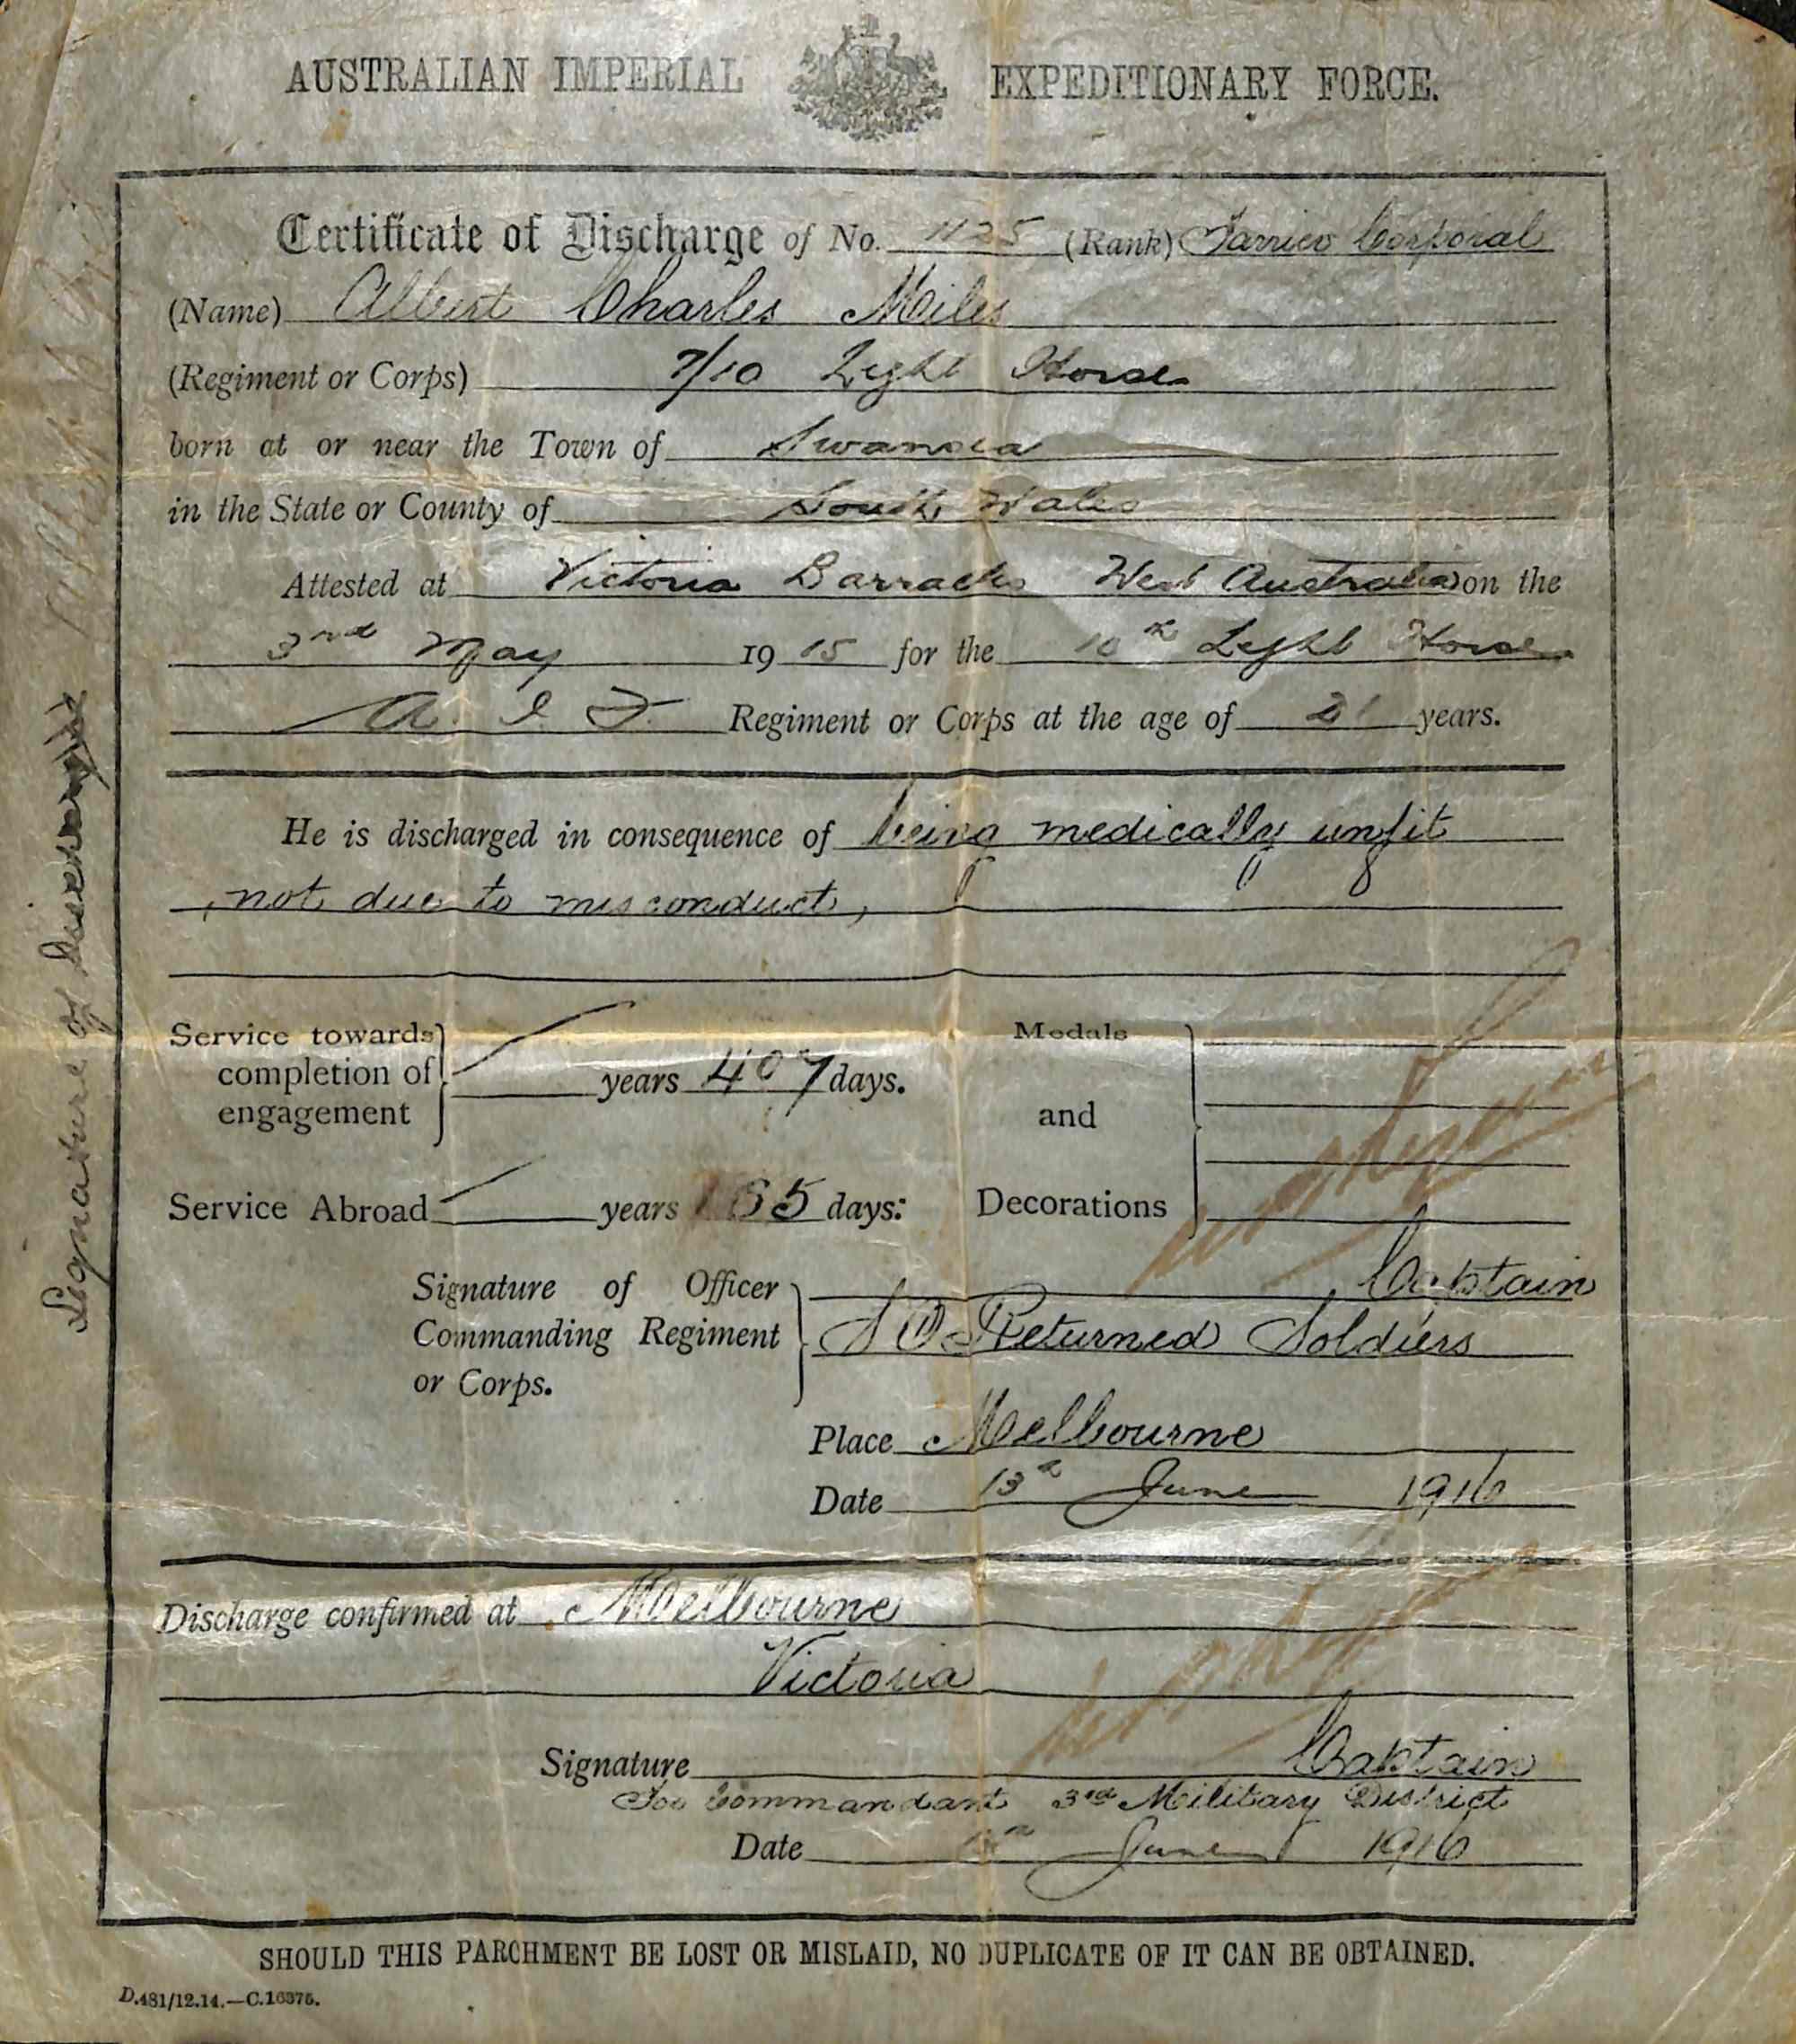 AUSTRALIAN IMPERIAL EXPEDITIONARY FORCE.
Certificate of Discharge of No. 1125 (Rank) Farrier Corporal
(Name) Albert Charles Miles
(Regiment or Corps) 7/10 Light Horse
born at or near the Town of Swansea
in the State or County of South Wales
Attested at Victoria Barracks West Australia on the
3rd May 1915 for the 10th Light Horse
A. I. F. Regiment or Corps at the age of 21 years.
He is discharged in consequence of being medically unfit
, not due to misconduct,
Service towards completion of engagement years 407 days.
Medals and Decorations
Service Abroad years 165 days:
Signature of Officer Commanding Regiment or Corps.
Captain
S O Returned Soldiers
Place Melbourne
Date 13th June 1916
Discharge confirmed at Melbourne
Victoria
Signature Captain
For Commandant 3rd Military District
Date June 1916
SHOULD THIS PARCHMENT BE LOST OR MISLAID, NO DUPLICATE OF IT CAN BE OBTAINED.
D.481/12.14.—C.16375.
Signature of